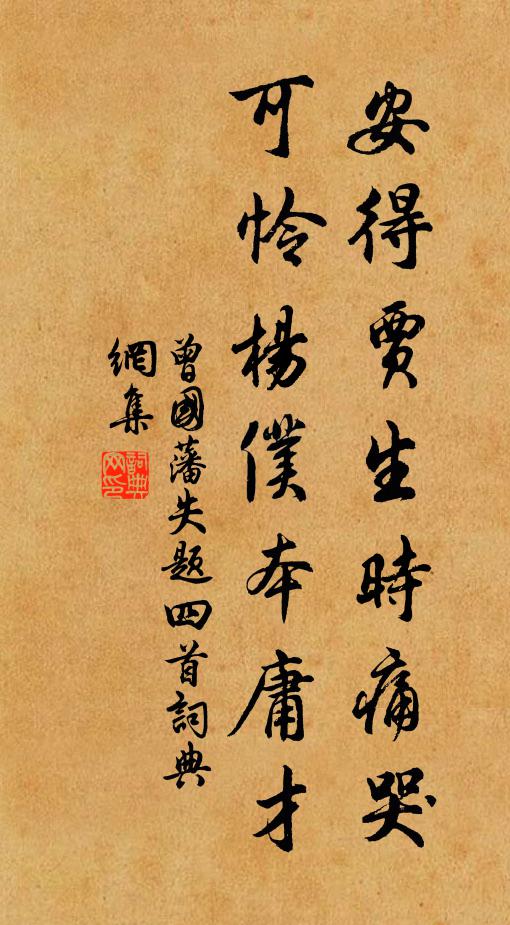 安得賈生時痛哭
可怜楊僕本庸才
曾國藩失題四首詞典
網集
詞典網印